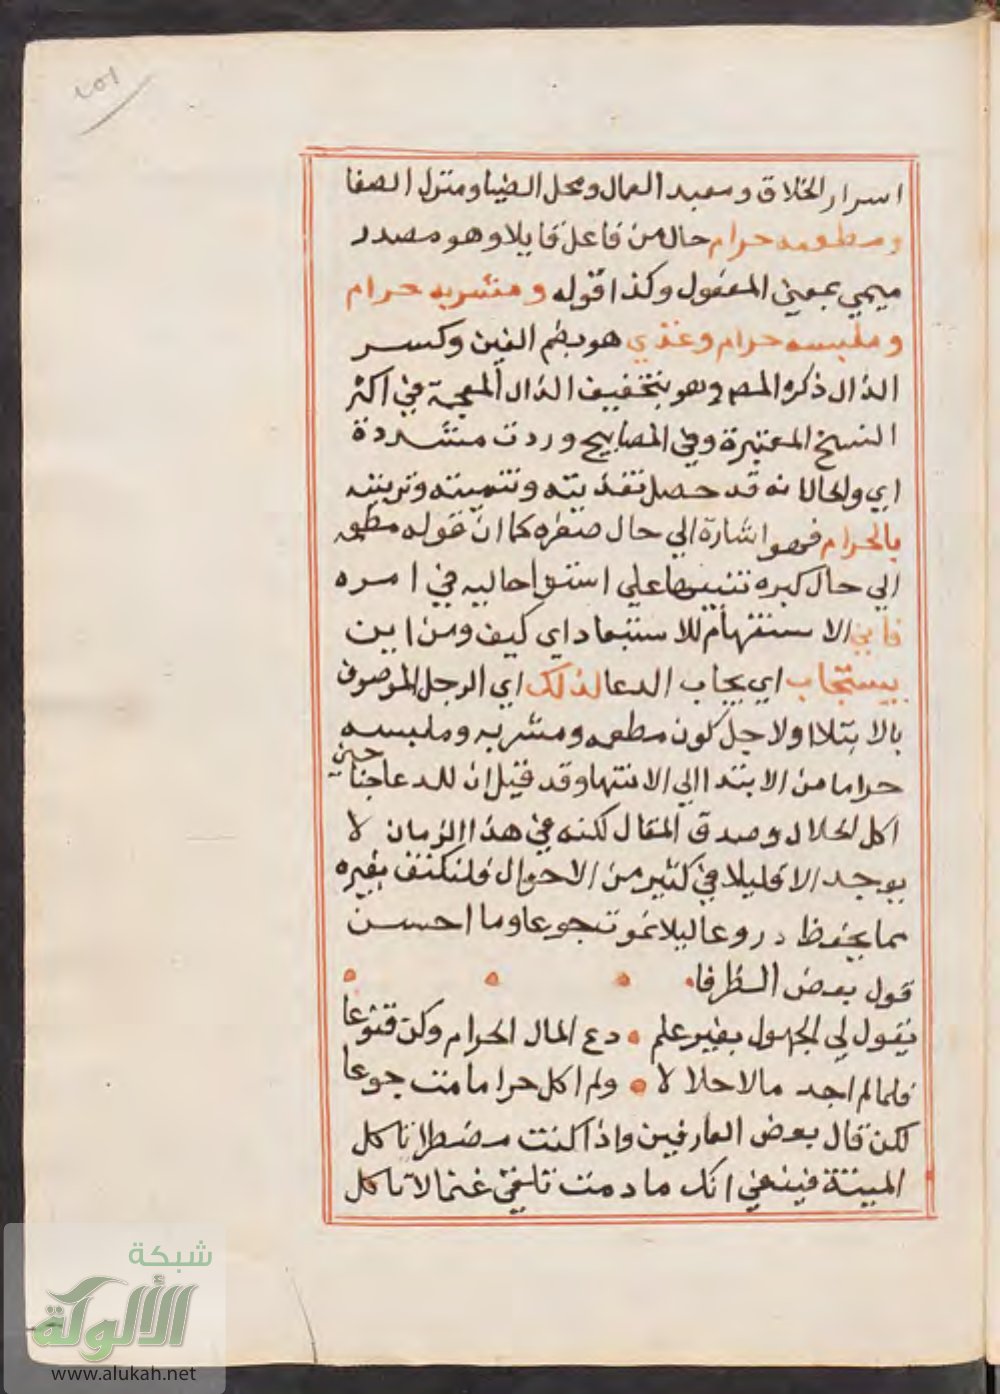 ١٥٦
اسرار الخلاق ومعبد العمال ومحل الضيا ومنزل الصفا
ومطعمه حرام حال من فاعل قايلا وهو مصدر
ميمي بمعني المفعول وكذا قوله ومشربه حرام
وملبسه حرام وغذي هو بضم الغين وكسر
الذال ذكره المص وهو بتخفيف الذال المعجمة في اكثر
النسخ المعتبرة وفي المصابيح وردت مشددة
اي والحال انه قد حصل تغذيته وتنميته وتربيته
بالحرام فهو اشارة الي حال صغره كما ان قوله مطعمه
الي حال كبره تنبيها علي استوا حاليه في امره
فاني الاستفهام للاستبعاد اي كيف ومن اين
يستجاب اي يجاب الدعا لذلك اي الرجل الموصوف
بالابتلا او لاجل كون مطعمه ومشربه وملبسه
حراما من الابتدا الي الانتها وقد قيل ان للدعا جناحين
اكل الحلال وصدق المقال لكنه في هذا الزمان لا
يوجد الا قليلا في كثير من الاحوال فلنكتف بغيره
بما يحفظ دروعا ليلا نموت جوعا وما احسن
قول بعض الظرفا
يقول لي الجهول بغير علم دع المال الحرام وكن قنوعا
فلما لم اجد مالا حلالا ولم اكل حراما مت جوعا
لكن قال بعض العارفين واذا كنت مضطرا تاكل
الميتة فينبغي انك ما دمت تلقي غنما لا تاكل
شبكة
الألوكة
www.alukah.net